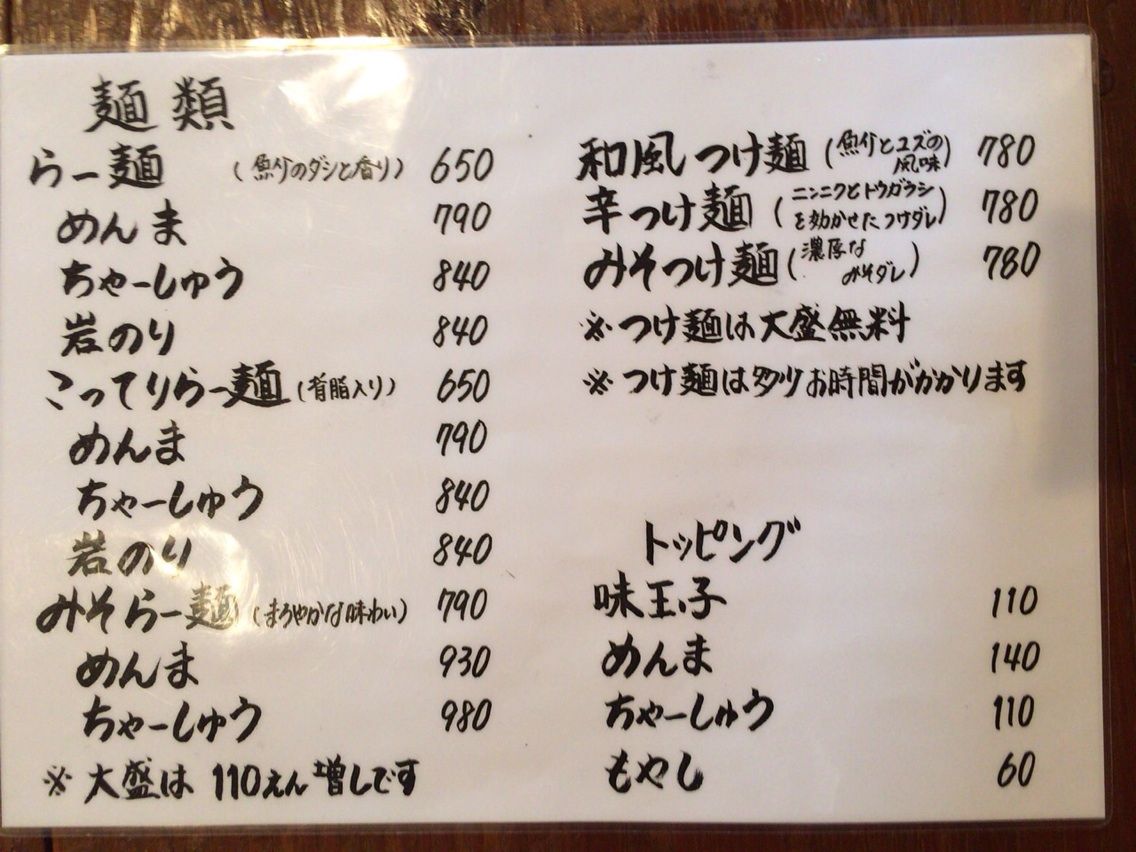 麺類
らー麺 (魚介のダシと香り) 650
めんま 790
ちゃーしゅう 840
岩のり 840
こってりらー麺 (背脂入り) 650
めんま 790
ちゃーしゅう 840
岩のり 840
みそらー麺 (まろやかな味わい) 790
めんま 930
ちゃーしゅう 980
※ 大盛は 110えん増しです
和風つけ麺 (魚介とユズの
風味) 780
辛つけ麺 (ニンニクとトウガラシ
を効かせたつけダレ) 780
みそつけ麺 (濃厚な
みそダレ) 780
※ つけ麺は大盛無料
※ つけ麺は多少お時間がかかります
トッピング
味玉子 110
めんま 140
ちゃーしゅう 110
もやし 60